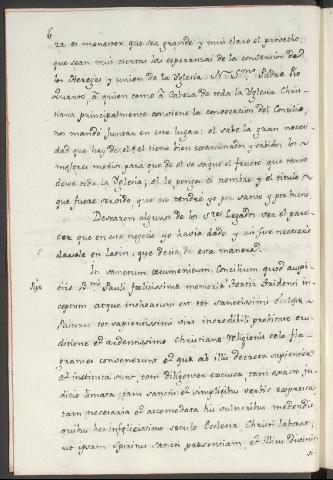 6
ra es menester que sea grande y mui claro el provecho,
que sean mui ciertas las esperanzas de la conversion de
los Hereges y union de la Yglesia: N. Smo. Padre Pio
Quarto, à quien como à Cabeza de toda la Yglesia Chris-
tiana principalmente conviene la convocacion del Concilio,
nos mandò juntar en este lugar: el sabe la gran necesi-
dad que hay de el, y el tiene bien examinados y sabidos los
mejores medios para que de el se saque el fructo que tanto
desea toda la Yglesia; el le ponga el nombre y el titulo
que fuere servido, que èse tendrè yo por santo y por bueno.
Desearon algunos de los Sres. Legados ver el pare-
cer que en este negocio yo havia dado y asi fue necesario
darsele en latin, que decia de esta manera.
In sanctum œcumenicum Concilium quod auspi-
ciis Smi. Pauli fœlicissimæ memoriæ Tertii Tridenti in-
ceptum atque inchoatum est tot sanctissimi Ecclesiæ
Pastores tot sapientissimi viri incredibili probitate eru-
ditione et ardentissimo Christianæ Religionis zelo fla-
grantes convenerunt et quæ ab illis decreta sapienter
et instituta sunt, tam diligenter excussa, tam exacto ju-
dicio limata, tam sanctis et simplicibus verbis expressa
tam necessaria et acomodata his vulneribus medendis
quibus hoc infelicissimo sæculo Ecclesia Christi laborat,
ut ipsam Spiritus Sancti præsentiam, et illius divinita-